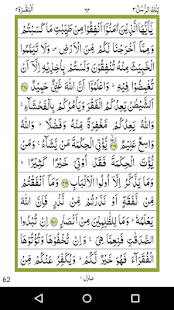 تِلْكَ الرُّسُلُ ٣ ٦٢ اَلْبَقَرَة ٢
يٰۤاَيُّهَا الَّذِيْنَ اٰمَنُوْۤا اَنْفِقُوْا مِنْ طَيِّبٰتِ مَا كَسَبْتُمْ
وَمِمَّاۤ اَخْرَجْنَا لَكُمْ مِّنَ الْاَرْضِ ۪ وَلَا تَيَمَّمُوا
الْخَبِيْثَ مِنْهُ تُنْفِقُوْنَ وَلَسْتُمْ بِاٰخِذِيْهِ اِلَّاۤ
اَنْ تُغْمِضُوْا فِيْهِ ؕ وَاعْلَمُوْۤا اَنَّ اللّٰهَ غَنِيٌّ حَمِيْدٌ
اَلشَّيْطٰنُ يَعِدُكُمُ الْفَقْرَ وَيَاْمُرُكُمْ بِالْفَحْشَآءِ ۚ
وَاللّٰهُ يَعِدُكُمْ مَّغْفِرَةً مِّنْهُ وَفَضْلًا ؕ وَاللّٰهُ
وَاسِعٌ عَلِيْمٌ ﴿٢٦٨﴾ يُّؤْتِى الْحِكْمَةَ مَنْ يَّشَآءُ ۚ وَمَنْ
يُّؤْتَ الْحِكْمَةَ فَقَدْ اُوْتِىَ خَيْرًا كَثِيْرًا ؕ
وَمَا يَذَّكَّرُ اِلَّاۤ اُولُوا الْاَلْبَابِ ﴿٢٦٩﴾ وَمَاۤ اَنْفَقْتُمْ
مِّنْ نَّفَقَةٍ اَوْ نَذَرْتُمْ مِّنْ نَّذْرٍ فَاِنَّ اللّٰهَ
يَعْلَمُهٗ ؕ وَمَا لِلظّٰلِمِيْنَ مِنْ اَنْصَارٍ ﴿٢٧٠﴾ اِنْ تُبْدُوا
الصَّدَقٰتِ فَنِعِمَّا هِىَ ۚ وَاِنْ تُخْفُوْهَا وَتُؤْتُوْهَا
الْفُقَرَآءَ فَهُوَ خَيْرٌ لَّكُمْ ؕ وَيُكَفِّرُ عَنْكُمْ مِّنْ
62
منزل ١